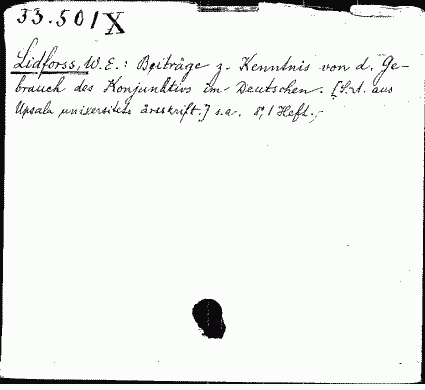 33.501 X
Lidforss, W. E.: Beiträge z. Kenntnis von d. Ge-
brauch des Konjunktivs im Deutschen. [S.-A. aus
Upsala universitets årsskrift.] s. a. 8°, 1 Heft.,-